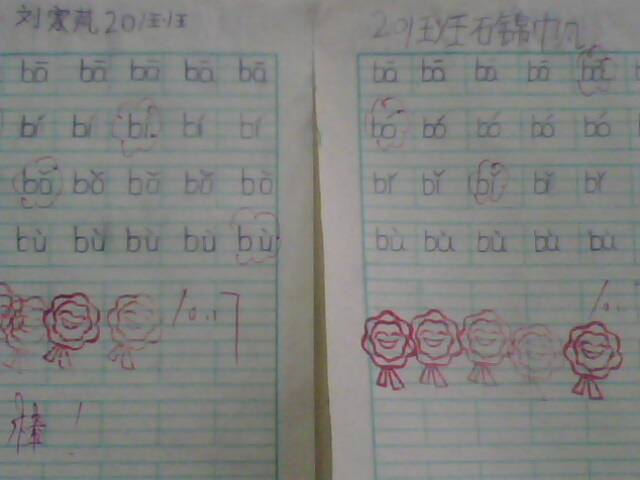 201班
bā bā bā bā bā
bí bí bí bí bí
bǒ bǒ bǒ bǒ bǒ
bù bù bù bù bù
10.17
棒！
201班石锦帆
bā bā bā bā bā
bó bó bó bó bó
bǐ bǐ bǐ bǐ bǐ
bù bù bù bù bù
10.